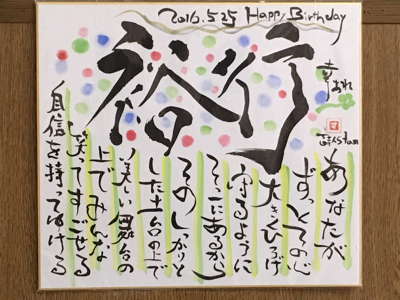 2016.5.25 Happy Birthday
裕行
幸あれ
あなたが
ずっとその心
大きくひろげ
守るように
そこにあるから
そのしっかりと
した土台の上で
舞台の
上でみんな
笑ってすごせる
自信を持ってゆける